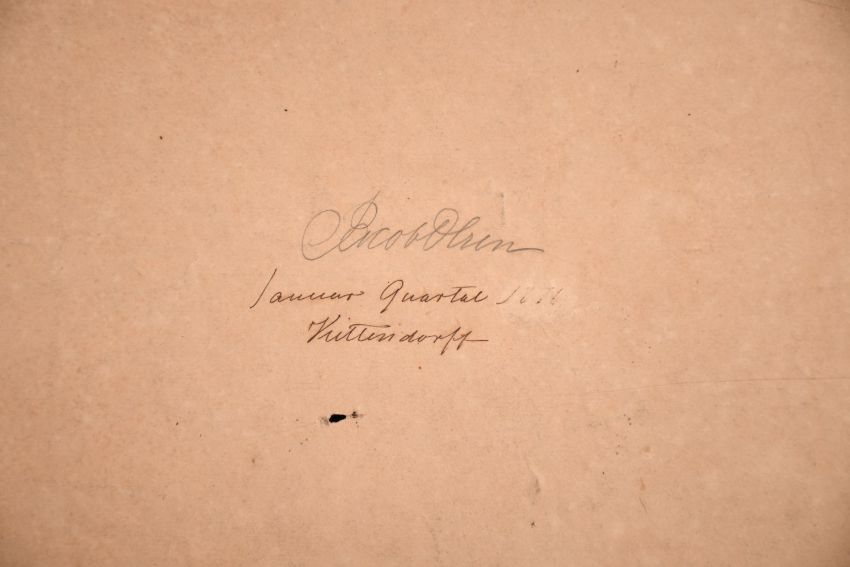 Jacob Olsen
Januar Quartal 1876
Vittendorff